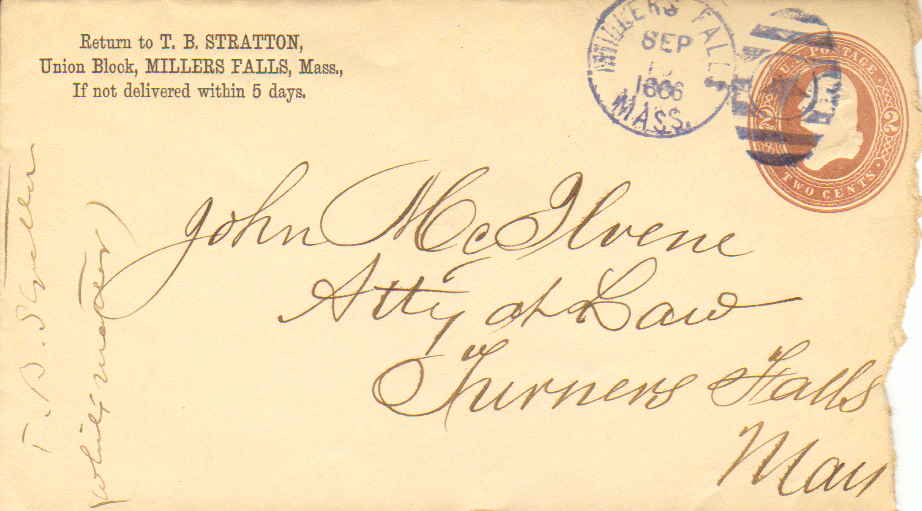 Return to T. B. STRATTON,
Union Block, MILLERS FALLS, Mass.,
If not delivered within 5 days.
MILLERS FALLS
SEP
1886
MASS.
U.S. POSTAGE
2 2
TWO CENTS
John McIlvene
Atty at Law
Turners Falls
Mass
T. B. Stratton